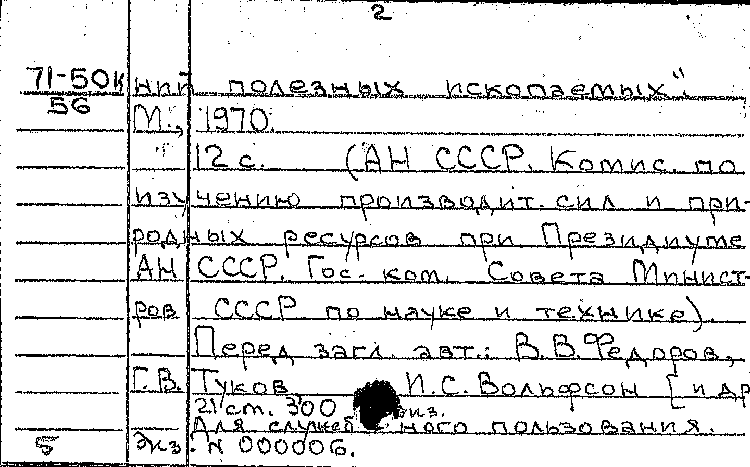 2
71-50к
56
ний полезных ископаемых".
М., 1970.
12 с. (АН СССР. Комис. по
изучению производит. сил и при-
родных ресурсов при Президиуме
АН СССР. Гос. ком. Совета Минист-
ров СССР по науке и технике).
Перед загл. авт.: В.В.Федоров,
Г.В. Туков И.С. Вольфсон [и др
21 ст. 300 экз.
Для служебного пользования.
5 Экз. N 000006.